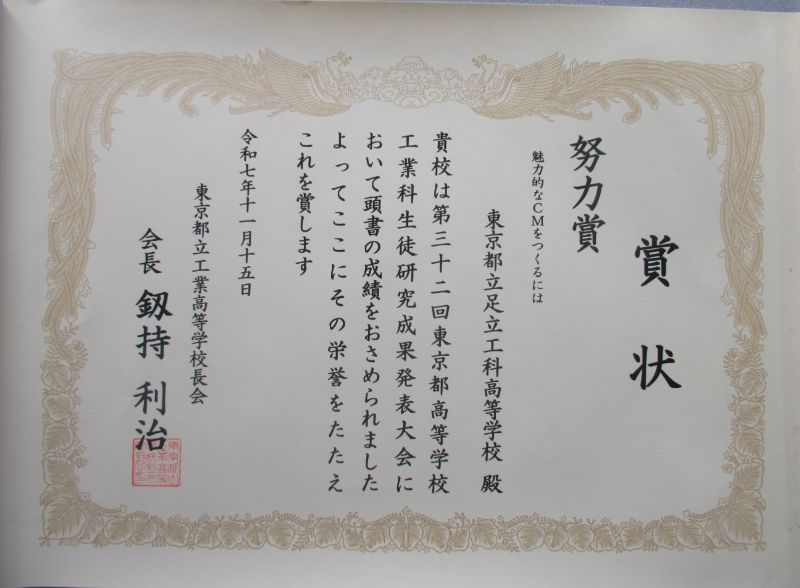 賞状
努力賞
魅力的なCMをつくるには
東京都立足立工科高等学校 殿
貴校は第三十二回東京都高等学校
工業科生徒研究成果発表大会に
おいて頭書の成績をおさめられました
よってここにその栄誉をたたえ
これを賞します
令和七年十一月十五日
東京都立工業高等学校長会
会長 釼持利治